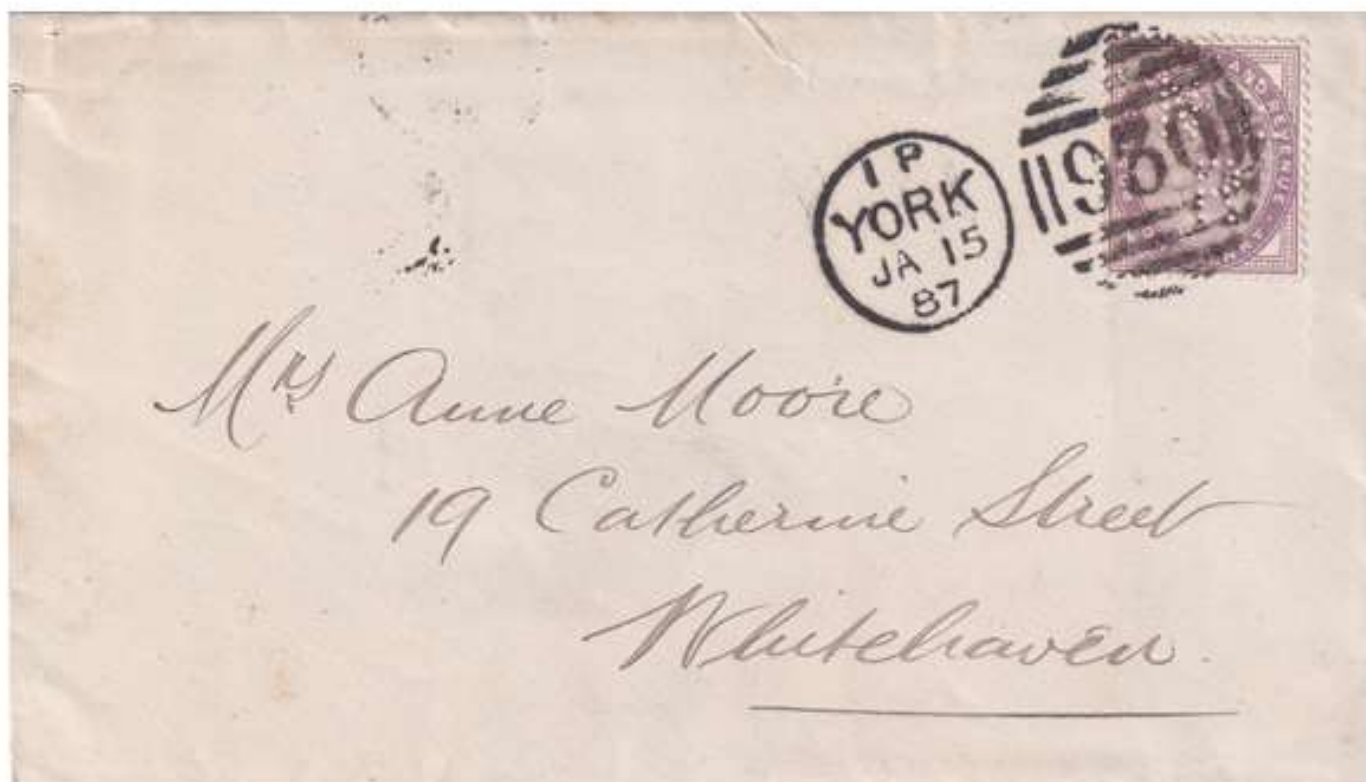 1 P
YORK
JA 15
87
930
AND REVENUE
Mrs Anne Moore
19 Catherine Street
Whitehaven.